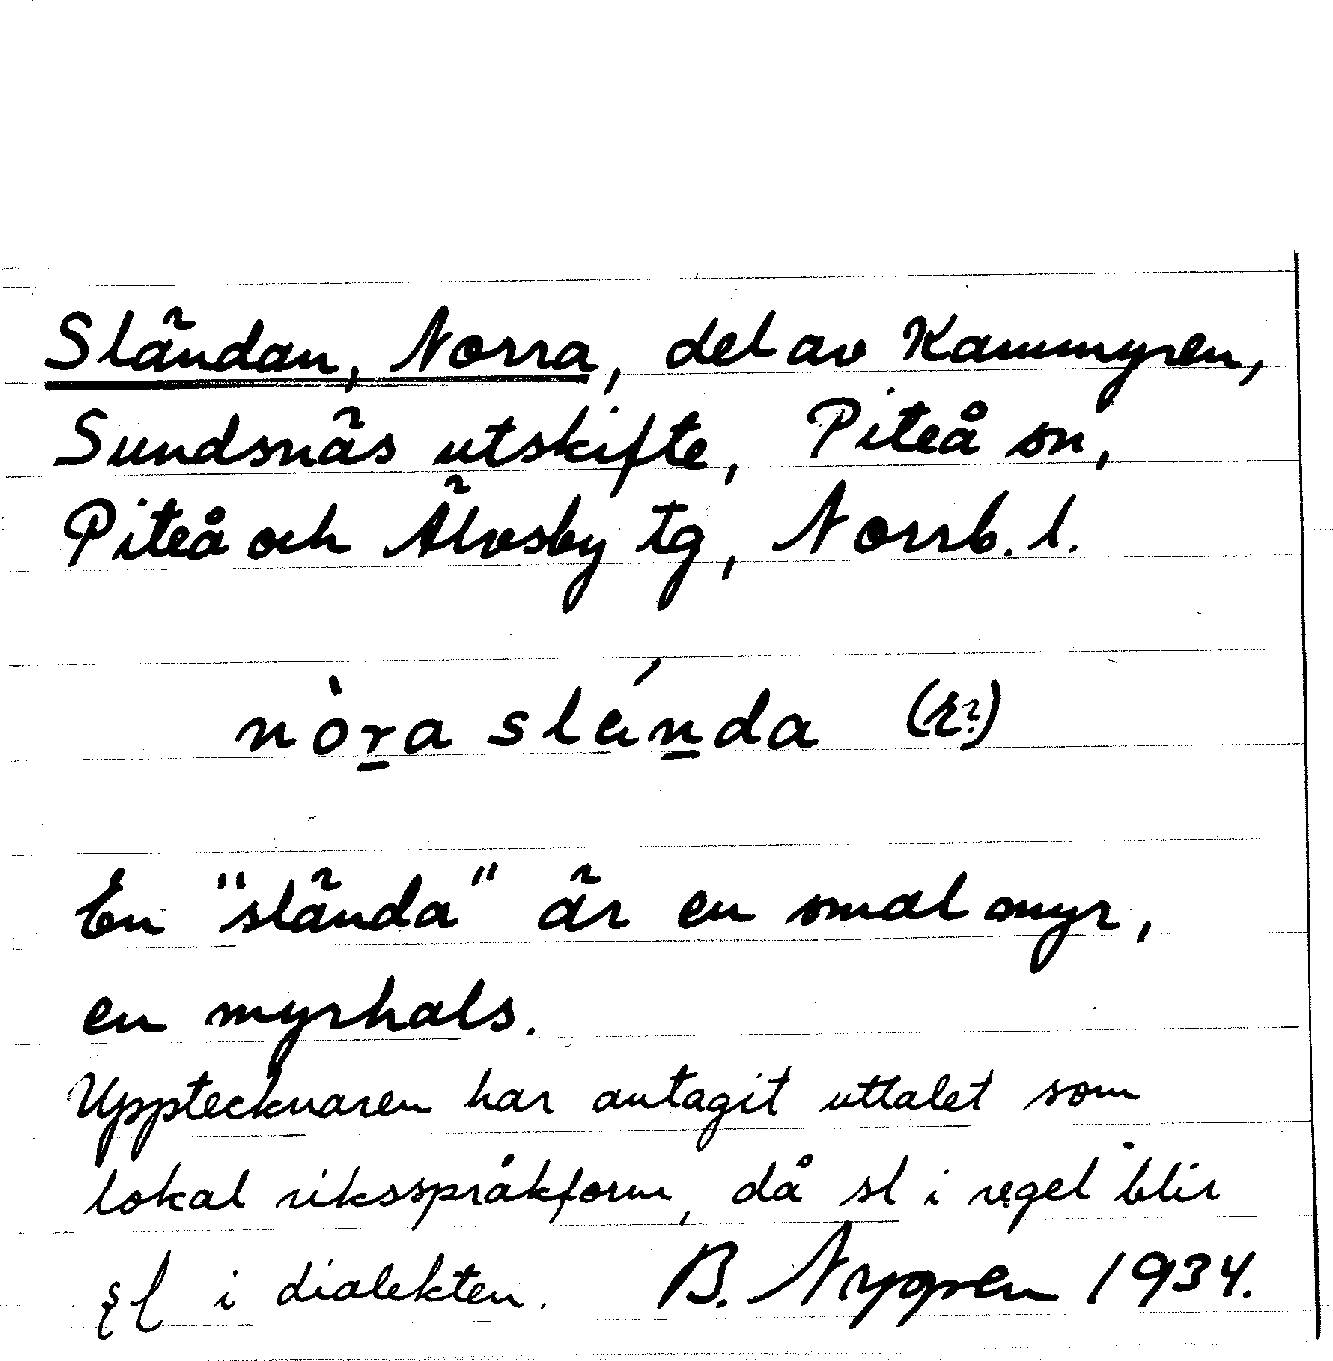 Sländan, Norra, del av Kammyren,
Sundsnäs utskifte, Piteå sn,
Piteå och Älvsby tg, Norrb. l.
nòr̲a släń̲da (r?)
En "slända" är en smal myr,
en myrhals.
Upptecknaren har antagit uttalet som
lokal riksspråkform, då sl i regel blir
i dialekten. B. Nygren 1934.